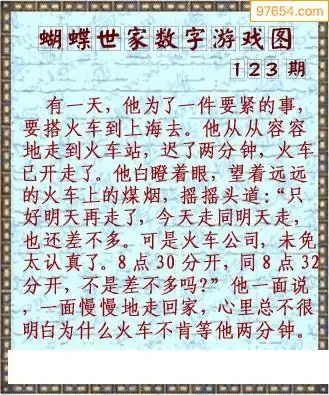 97654.com
蝴蝶世家数字游戏图
123期
有一天，他为了一件要紧的事，
要搭火车到上海去。他从从容容
地走到火车站，迟了两分钟，火车
已开走了。他白瞪着眼，望着远远
的火车上的煤烟，摇摇头道：“只
好明天再走了，今天走同明天走，
也还差不多。可是火车公司，未免
太认真了。8点30分开，同8点32
分开，不是差不多吗？”他一面说
，一面慢慢地走回家，心里总不很
明白为什么火车不肯等他两分钟。